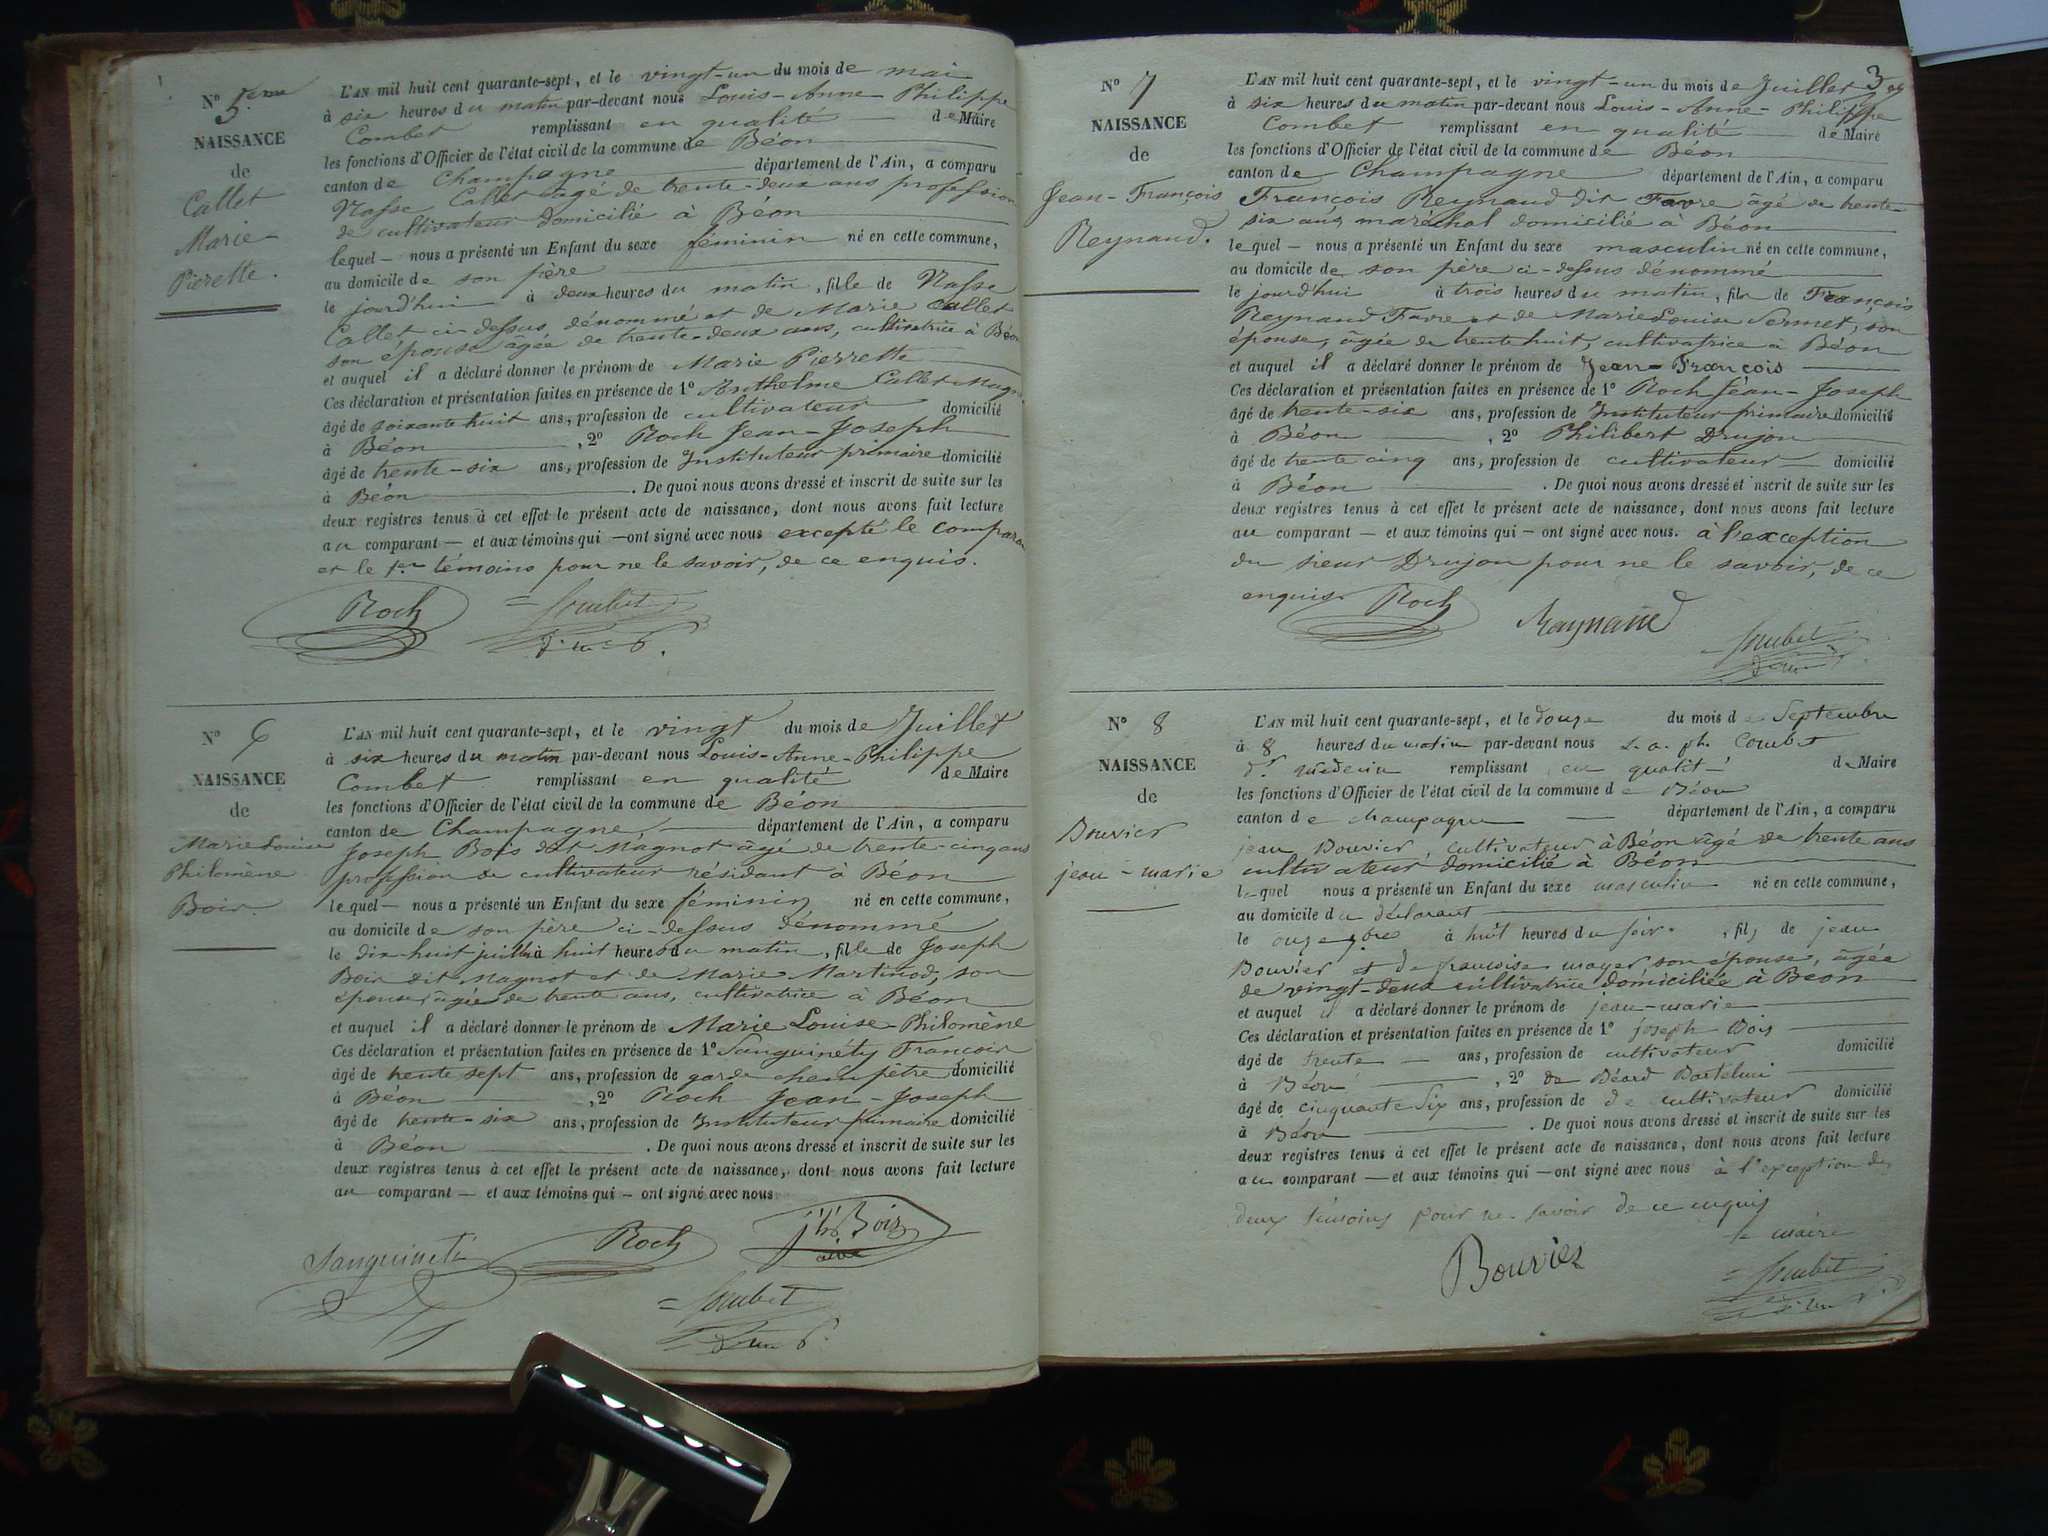 N° 5.eme
NAISSANCE
de
Callet
Marie
Pierette.
L'AN mil huit cent quarante-sept, et le vingt-un du mois de mai
à six heures du matin par-devant nous Louis-Anne-Philippe
Combet remplissant en qualité de Maire
les fonctions d'Officier de l'état civil de la commune de Béon
canton de Champagne département de l'Ain, a comparu
Callet âgé de trente-deux ans profession
de cultivateur domicilié à Béon
lequel — nous a présenté un Enfant du sexe féminin né en cette commune,
au domicile de son père
le jourd'hui à deux heures du matin, fille de
Callet ci-dessus dénommé et de Marie Callet
son épouse âgée de trente-deux ans, cultivatrice à Béon
et auquel il a déclaré donner le prénom de Marie Pierrette
Ces déclaration et présentation faites en présence de 1° Anthelme Callet-Magn
âgé de soixante huit ans, profession de cultivateur domicilié
à Béon , 2° Roch Jean-Joseph
âgé de trente-six ans, profession de Instituteur primaire domicilié
à Béon . De quoi nous avons dressé et inscrit de suite sur les
deux registres tenus à cet effet le présent acte de naissance, dont nous avons fait lecture
au comparant — et aux témoins qui — ont signé avec nous excepté le compara
et le 1er témoins pour ne le savoir, de ce enquis.
Roch Combet
N° 6
NAISSANCE
de
Marie Louise
Philomène
Bois.
L'AN mil huit cent quarante-sept, et le vingt du mois de Juillet
à six heures du matin par-devant nous Louis-Anne-Philippe
Combet remplissant en qualité de Maire
les fonctions d'Officier de l'état civil de la commune de Béon
canton de Champagne, département de l'Ain, a comparu
Joseph Bois dit Magnot âgé de trente-cinq ans
profession de cultivateur résidant à Béon
lequel — nous a présenté un Enfant du sexe féminin né en cette commune,
au domicile de son père ci-dessus dénommé
le dix-huit juillet à huit heures du matin, fille de Joseph
Bois dit Magnot et de Marie Martinod, son
épouse âgée de trente ans, cultivatrice à Béon
et auquel il a déclaré donner le prénom de Marie Louise-Philomène
Ces déclaration et présentation faites en présence de 1° Sanguinéty Francois
âgé de trente sept ans, profession de garde champêtre domicilié
à Béon , 2° Roch Jean-Joseph
âgé de trente-six ans, profession de Instituteur primaire domicilié
à Béon . De quoi nous avons dressé et inscrit de suite sur les
deux registres tenus à cet effet le présent acte de naissance, dont nous avons fait lecture
au comparant — et aux témoins qui — ont signé avec nous
Sanguineti Roch jph Bois
Combet
3
N° 7
NAISSANCE
de
Jean-François
Reynaud.
L'AN mil huit cent quarante-sept, et le vingt-un du mois de Juillet
à six heures du matin par-devant nous Louis-Anne-Philippe
Combet remplissant en qualité de Maire
les fonctions d'Officier de l'état civil de la commune de Béon
canton de Champagne département de l'Ain, a comparu
François Reynaud dit Favre âgé de trente-
six ans, maréchal domicilié à Béon
lequel — nous a présenté un Enfant du sexe masculin né en cette commune,
au domicile de son père ci-dessus dénommé
le jourd'hui à trois heures du matin, fils de François
Reynaud Favre et de Marie Louise Sermet, son
épouse, âgée de trente huit, cultivatrice à Béon
et auquel il a déclaré donner le prénom de Jean-François
Ces déclaration et présentation faites en présence de 1° Roch Jean-Joseph
âgé de trente-six ans, profession de Instituteur primaire domicilié
à Béon , 2° Philibert Drujon
âgé de trente cinq ans, profession de cultivateur domicilié
à Béon . De quoi nous avons dressé et inscrit de suite sur les
deux registres tenus à cet effet le présent acte de naissance, dont nous avons fait lecture
au comparant — et aux témoins qui — ont signé avec nous. à l'exception
du sieur Drujon pour ne le savoir, de ce
enquis. Roch Raynaud
Combet
N° 8
NAISSANCE
de
Bouvier
jean-marie
L'AN mil huit cent quarante-sept, et le douze du mois de Septembre
à 8 heures du matin par-devant nous L. a. ph. Combet
dr medecin remplissant en qualité de Maire
les fonctions d'Officier de l'état civil de la commune de Béon
canton de champagne département de l'Ain, a comparu
jean Bouvier, cultivateur à Béon âgé de trente ans
cultivateur domicilié à Béon
lequel nous a présenté un Enfant du sexe masculin né en cette commune,
au domicile du déclarant
le onze 7bre à huit heures du soir, fils de jean
Bouvier et de françoise mayer son épouse, âgée
de vingt-deux cultivatrice domiciliée à Béon
et auquel il a déclaré donner le prénom de jean-marie
Ces déclaration et présentation faites en présence de 1° joseph Bois
âgé de trente — ans, profession de cultivateur domicilié
à Béon , 2° de Béard Bartelmi
âgé de cinquante Six ans, profession de de cultivateur domicilié
à Béon . De quoi nous avons dressé et inscrit de suite sur les
deux registres tenus à cet effet le présent acte de naissance, dont nous avons fait lecture
au comparant — et aux témoins qui — ont signé avec nous à l'exception des
deux témoins pour ne savoir de ce enquis
le maire
Bouvier
Combet